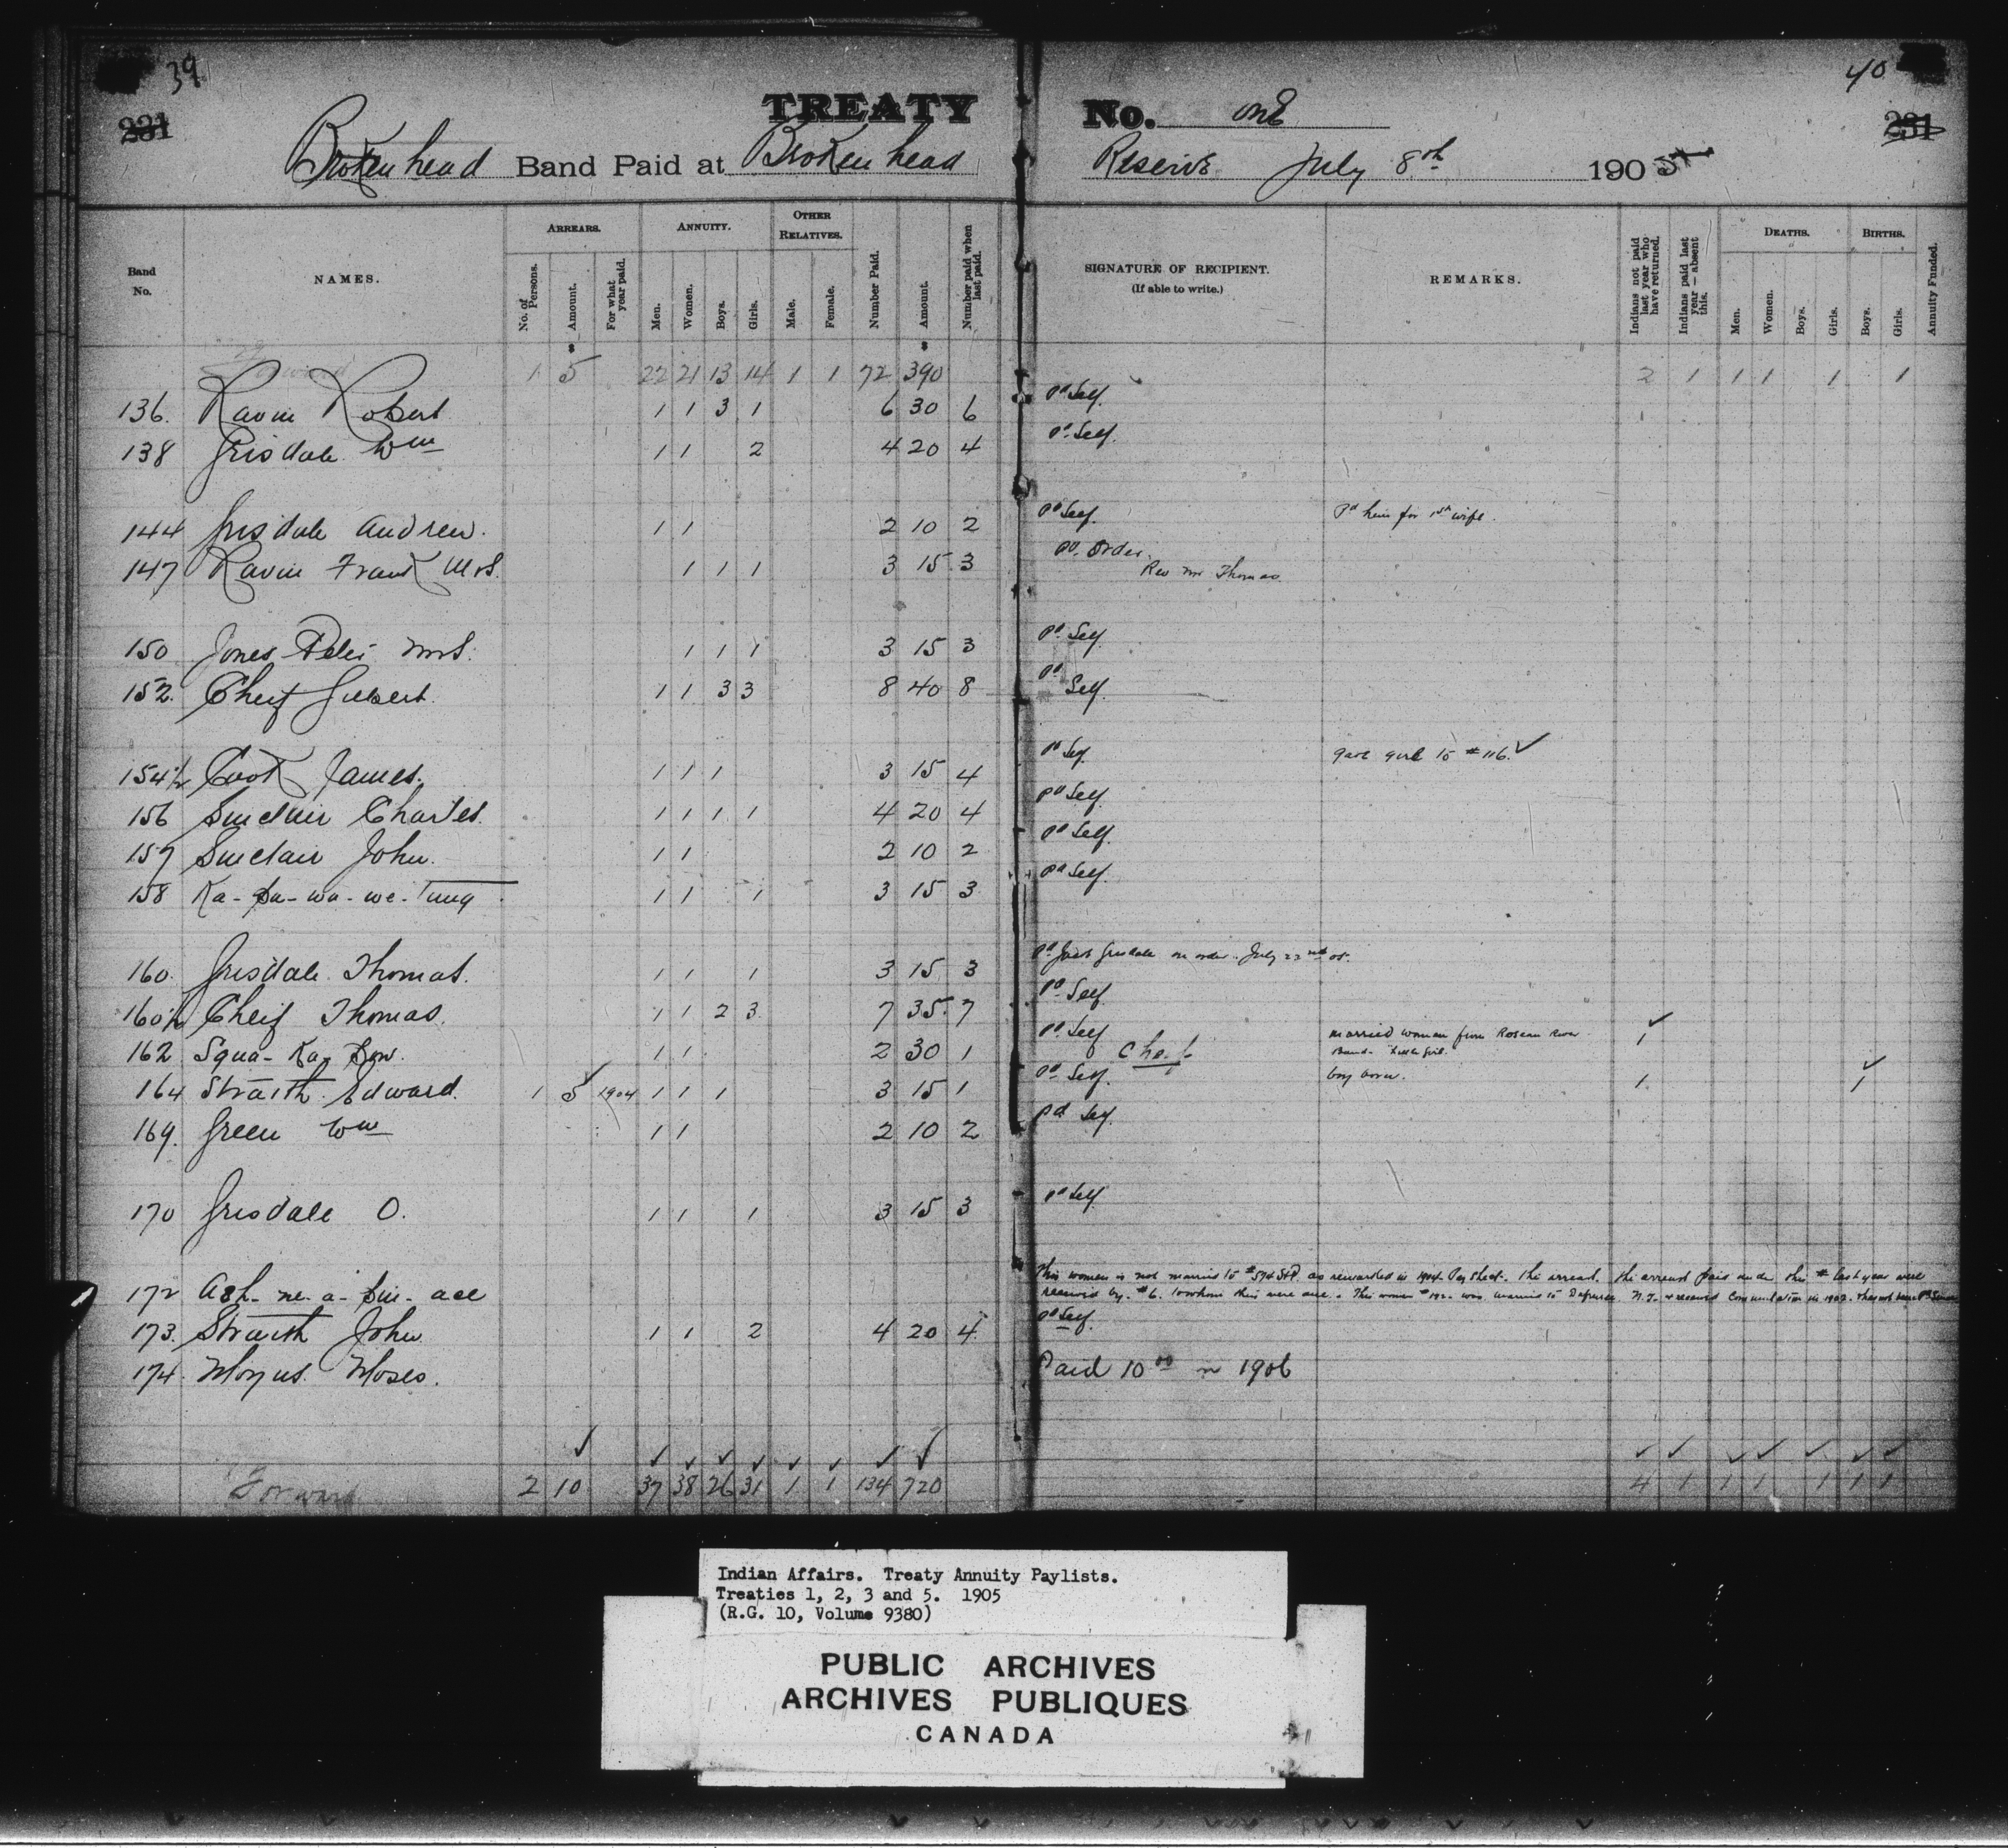 39
40
231
231
TREATY No. one
Brokenhead Band Paid at Brokenhead Reserve July 8th 1905
Band No.
NAMES.
ARREARS.
No. of Persons.
Amount.
For what year paid.
ANNUITY.
Men.
Women.
Boys.
Girls.
OTHER RELATIVES.
Male.
Female.
Number Paid.
Amount.
Number paid when last paid.
SIGNATURE OF RECIPIENT.
(If able to write.)
REMARKS.
Indians not paid last year who have returned.
Indians paid last year—absent this.
DEATHS.
Men.
Women.
Boys.
Girls.
BIRTHS.
Boys.
Girls.
Annuity Funded.
$ $
Forward 1 5 22 21 13 14 1 1 72 390 2 1 1 1 1 1
136. Ravin Robert 1 1 3 1 6 30 6 Pd Self.
138 Grisdale Wm 1 1 2 4 20 4 Pd Self.
144 Grisdale Andrew. 1 1 2 10 2 Pd Self. Pd heir for 1st wife.
147 Ravin Frank Mrs. 1 1 1 3 15 3 Pd. Order.
Rev Mr Thomas
150 Jones Peter Mrs. 1 1 1 3 15 3 Pd Self.
152. Cheif Gilbert. 1 1 3 3 8 40 8 Pd Self.
154½ Cook James. 1 1 1 3 15 4 Pd Self. gave girl to #116. ✓
156 Sinclair Charles. 1 1 1 1 4 20 4 Pd Self.
157 Sinclair John. 1 1 2 10 2 Pd Self.
158 Ka-pa-wa-we-tung 1 1 1 3 15 3 Pd Self.
160. Grisdale Thomas. 1 1 1 3 15 3 Pd Jack Grisdale on order. July 22nd 05.
160½ Cheif Thomas. 1 1 2 3 7 35. 7 Pd Self
162 Squa-Ka- 1 1 2 30 1 Pd Self Chief married woman from Roseau River 1 ✓
Band.
164 Straith Edward. 1 5 ✓ 1904 1 1 1 3 15 1 Pd Self. boy born. 1. 1 ✓
169. Green Wm 1 1 2 10 2 Pd Self.
170 Grisdale O. 1 1 1 3 15 3 Pd Self
172 Ash-ne-a- This woman is not married to #574 StP. as rewarded in 1904 Pay Sheet. The arrears paid under this # last year were
received by #6. to whom they were due. This woman was married to N.T. & received Commutation in 1902.
173. Straith John 1 1 2 4 20 4 Pd Self.
174. Moses. Paid 10 00 in 1906
✓ ✓ ✓ ✓ ✓ ✓ ✓ ✓ ✓ ✓ ✓ ✓ ✓ ✓ ✓ ✓
Forward 2 10 37 38 26 31 1 1 134 720 4 1 1 1 1 1 1
Indian Affairs. Treaty Annuity Paylists.
Treaties 1, 2, 3 and 5. 1905
(R.G. 10, Volume 9380)
PUBLIC ARCHIVES
ARCHIVES PUBLIQUES
CANADA